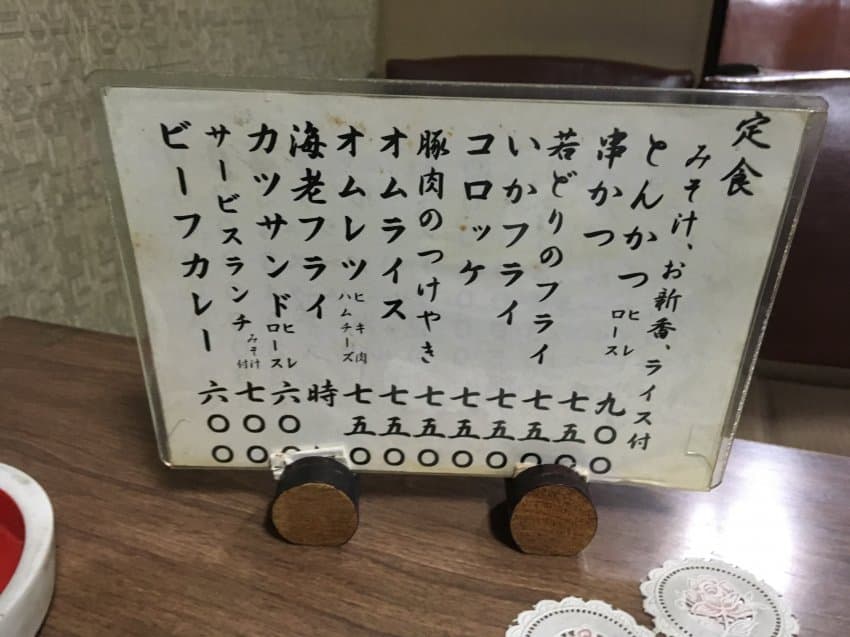 定食
みそ汁、お新香、ライス付
とんかつ ヒレ ロース 九〇〇
串かつ 七五〇
若どりのフライ 七五〇
いかフライ 七五〇
コロッケ 七五〇
豚肉のつけやき 七五〇
オムライス 七五〇
オムレツ ヒキ肉 ハムチーズ 七五〇
海老フライ 時
カツサンド ヒレ ロース 六〇〇
サービスランチ みそ汁付 七〇〇
ビーフカレー 六〇〇